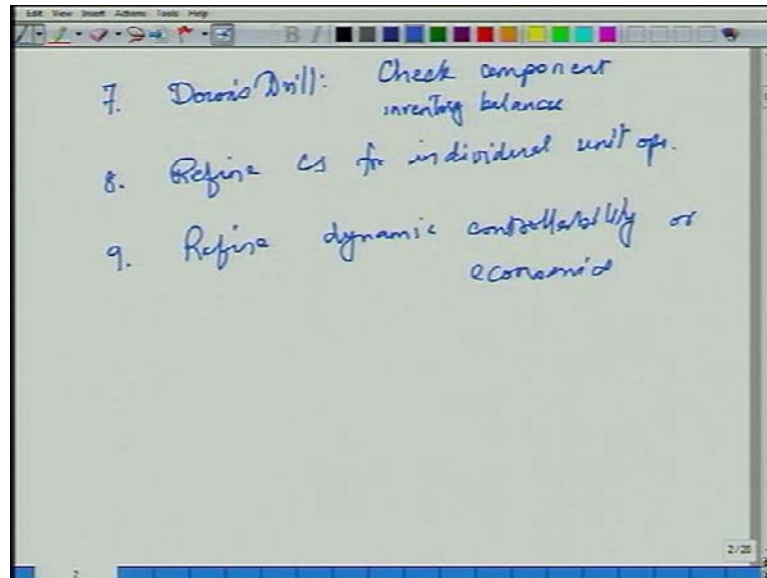 Edit View Insert Actions Tools Help
B I
7. Downs Drill: Check component
inventory balances
8. Refine CS for individual unit ops.
9. Refine dynamic controllability or
economics
2/20
2